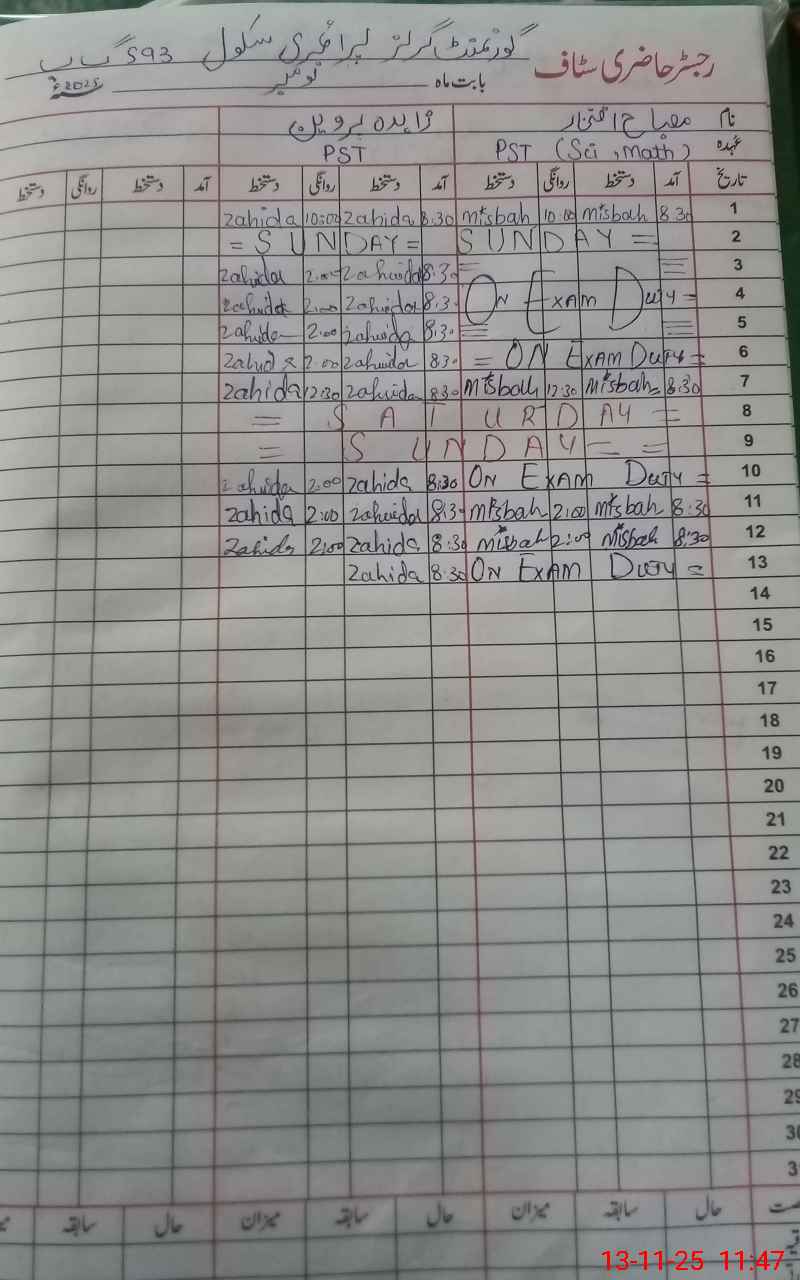 رجسٹر حاضری سٹاف گورنمنٹ گرلز پرائمری سکول 593 گ ب
بابت ماہ نومبر 2025ء
نام مصباح افتخار زاہدہ پروین
عہدہ PST (Sci, Math) PST
تاریخ آمد دستخط روانگی دستخط آمد دستخط روانگی دستخط آمد دستخط روانگی دستخط
1 8 30 misbah 10:00 misbah 8.30 zahida 10:00 zahida
2 = SUNDAY = SUNDAY =
3 8:30 zahida 2:00 zahida
4 ON EXAM DUTY = 8:30 zahida 2:00 zahida
5 8:30 zahida 2:00 zahida
6 = ON EXAM DUTY = 8:30 zahida 2:00 zahida
7 8:30 misbah 12:30 misbah 8:30 zahida 12:30 zahida
8 = SATURDAY =
9 = SUNDAY = =
10 ON EXAM DUTY = 8:30 zahida 2:00 zahida
11 8:30 misbah 2:00 misbah 8:30 zahida 2:00 zahida
12 8:30 misbah 2:00 misbah 8:30 zahida 2:00 zahida
13 ON EXAM DUTY = 8:30 zahida
14
15
16
17
18
19
20
21
22
23
24
25
26
27
28
29
30
3
حال سابقہ میزان حال سابقہ میزان حال سابقہ
13-11-25 11:47